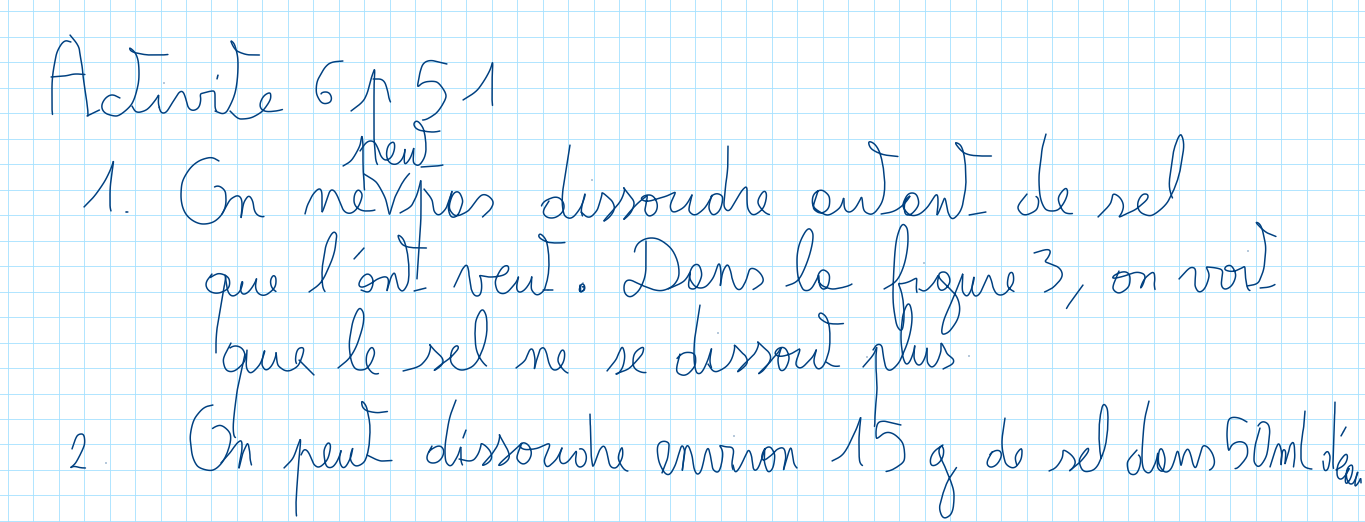 Activite 6 p 51
1. On ne peut pas dissoudre autant de sel
que l'ont veut. Dans la figure 3, on voit
que le sel ne se dissout plus
2. On peut dissoudre environ 15 g de sel dans 50ml d'eau